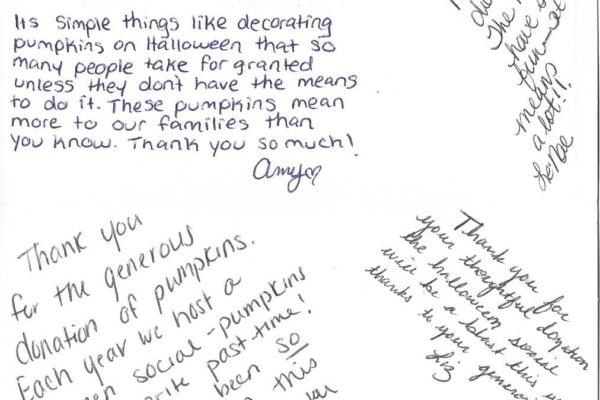 Its simple things like decorating
pumpkins on Halloween that so
many people take for granted
unless they don't have the means
to do it. These pumpkins mean
more to our families than
you know. Thank you so much!
Amy
The
have
fun—
means
a lot!!
Thank you
for the generous
donation of pumpkins.
Each year we host a
social-pumpkins
past-time!
been so
this
Thank you for
your thoughtful donation
the halloween social
will be a blast this
thanks to your
Liz